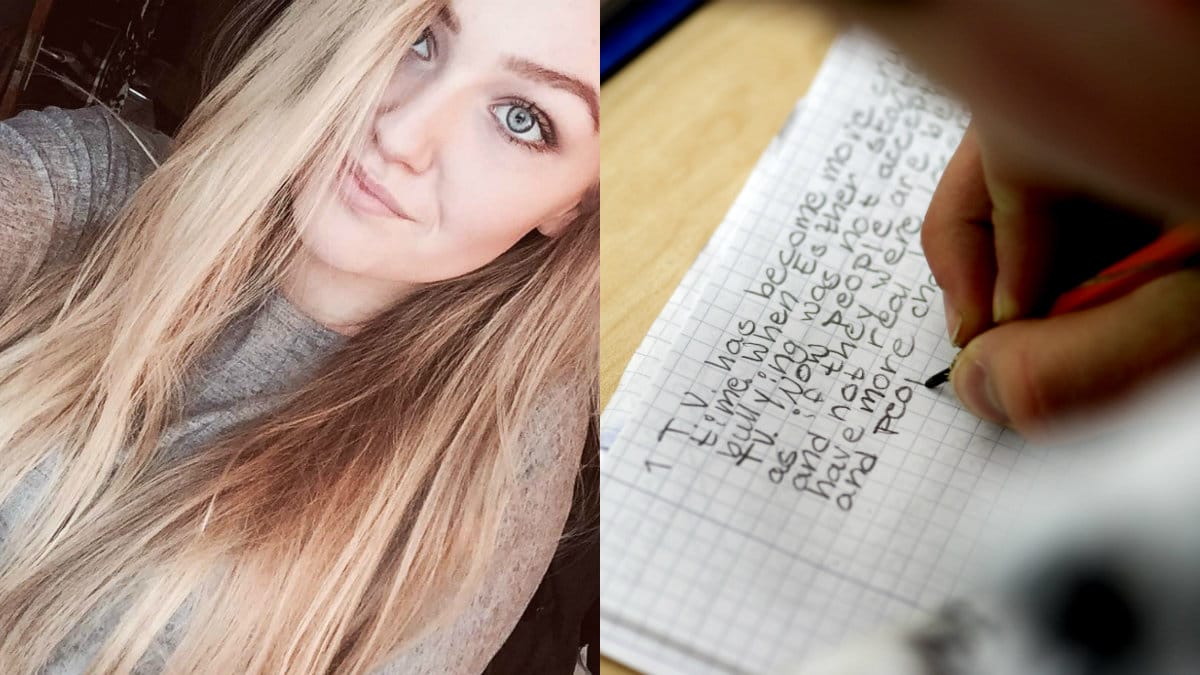 1 TV has become more
time. When Esther
bullying was not accept
TV. Now people are be
as if they were
and not real
have
and more
peo